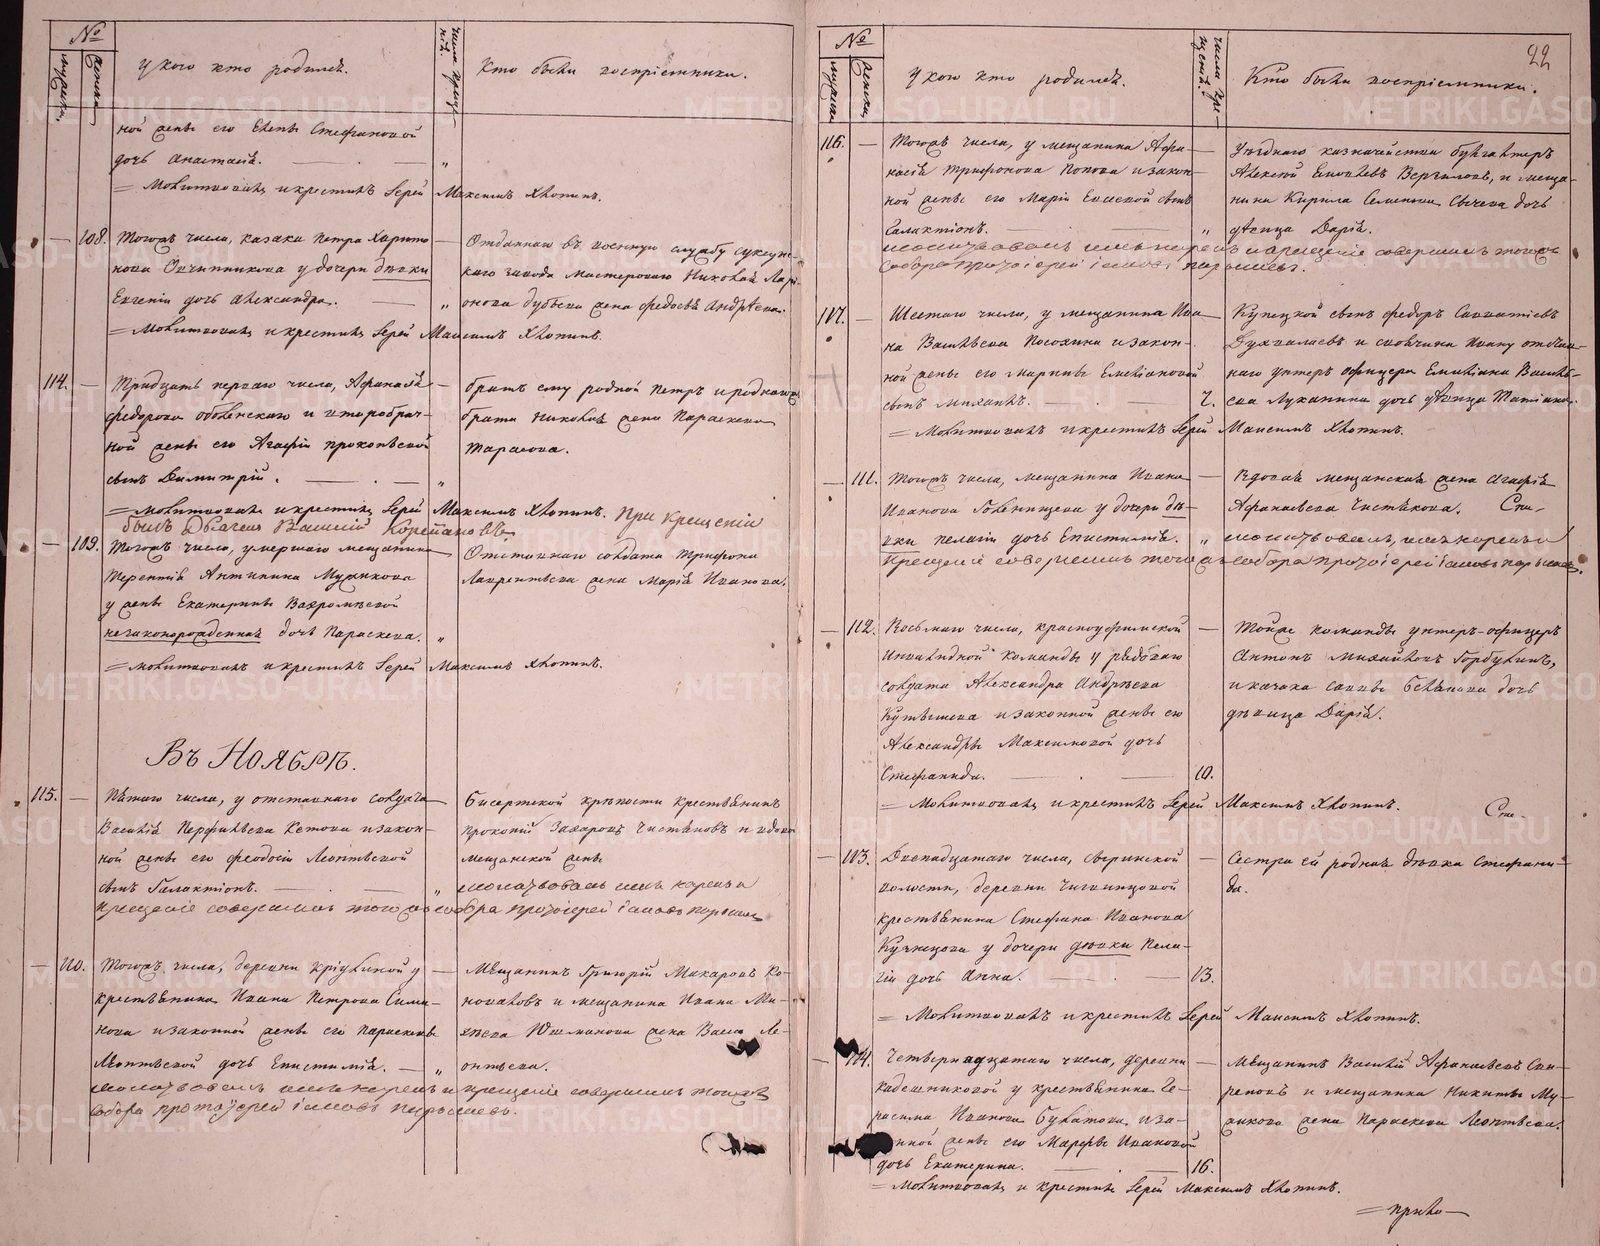 №
мужска
женска
У кого кто родился.
числа креще-нія.
Кто были воспріемники.
ной жены его Елены Стефановой
дочь Анастасія. „
= Молитвовалъ и крестилъ Іерей Максимъ Хлопинъ.
— 108. Тогожъ числа, казака Петра Харито —
нова Овчинникова у дочери дѣвки
Евгеніи дочь Александра. „
Отданнаго въ военную службу
каго завода мастероваго Николая Лари-
онова жена Федосья Андрѣева.
= Молитвовалъ и крестилъ Іерей Максимъ Хлопинъ.
114. — Тридцать перваго числа, Афанасія —
Федорова Оболенскаго и второбрач-
ной жены его Агафіи Прокопьевой
сынъ Димитрій. „
братъ ему родной Петръ и роднаго
брата Николая жена Параскева
Тарасова.
= Молитвовалъ и крестилъ Іерей Максимъ Хлопинъ. При крещеніи
былъ Дьячекъ Василій
— 109. Тогожъ числа, умершаго мещанина —
Терентія Антипина Мушкова
у жены Екатерины Вахромѣевой
незаконорожденная дочь Параскева. „
Отставнаго солдата Трифона
Лаврентьева жена Марія Иванова.
= Молитвовалъ и крестилъ Іерей Максимъ Хлопинъ.
Въ Ноябрѣ.
115. — Пятаго числа, у отставнаго солдата —
Василія Перфильева Кетова и закон-
ной жены его Феодосіи Леонтьевой
сынъ Галактіонъ. „
Бисертской крѣпости крестьянинъ
Прокопій Захаровъ Чистяковъ и вдова
мещанской жены
молитвовалъ имя нарекъ и
крещеніе совершилъ тогожъ собора протоіерей Іаковъ
— 110. Тогожъ числа, деревни Крюлиной у —
крестьянина Ивана Петрова Сима-
нова и законной жены его Параскевы
Леонтьевой дочь Епистимія. — „
Мѣщанинъ Григорій Макаровъ Ко-
новаловъ и мещанина Ивана Ми-
хѣева Юшманова жена Васса Ле-
онтьева.
молитвовалъ имя нарекъ и крещеніе совершилъ тогожъ
собора протоіерей Іаковъ
22
№
мужска
женска
У кого кто родился.
числа кре-щенія.
Кто были воспріемники.
116. — Тогожъ числа, у мещанина Афа- —
насія Трифонова Попова и закон-
ной жены его Маріи Енисковой сынъ
Галактіонъ. „
Уѣзднаго казначейства бухгалтеръ
Алексей Вергиловъ, и меща-
нина Кирила Семенова Сычева дочь
дѣвица Дарія.
молитвовалъ имя нарекъ и крещеніе совершилъ тогожъ
собора протоіерей Іаковъ
117. — Шестаго числа, у мещанина Ива —
на Васильева Посохина и закон-
ной жены его Марины Емеліановой
сынъ Михаилъ. 7.
Купецкой сынъ Федоръ Савватіевъ
наго унтеръ офицера Емиліана Василь-
ева Луканина дочь дѣвица Татіана.
= Молитвовалъ и крестилъ Іерей Максимъ Хлопинъ.
— 111. Тогожъ числа, мещанина Ивана —
Иванова Голенищева у дочери дѣ-
вки Пелагіи дочь Епистимія. „
Вдовая мещанская жена Агафія
Афанасьева Чистякова.
молитвовалъ, имя нарекъ и
крещеніе совершилъ тогожъ собора протоіерей Іаковъ
— 112. Восьмаго числа, красноуфимской —
инвалидной команды у рядоваго
солдата Александра Андрѣева
Кутяшева и законной жены его
Александры Максимовой дочь
Стефанида. 10.
Тойже команды унтеръ-офицеръ
Антонъ Михайловъ Горбунинъ,
и казака Саввы Белянова дочь
дѣвица Дарія.
= Молитвовалъ и крестилъ Іерей Максимъ Хлопинъ.
— 113. Двенадцатаго числа, сылвинской —
волости, деревни Чигвинцовой
крестьянина Стефана Иванова
Кузнецова у дочери дѣвки Пела-
гіи дочь Анна. 13.
Сестра ей родная дѣвка Стефани-
да.
= Молитвовалъ и крестилъ Іерей Максимъ Хлопинъ.
— 114. Четырнадцатаго числа, деревни —
Кадешниковой у крестьянина Ге-
расима Иванова Булатова и за-
конной жены его Марфы Ивановой
дочь Екатерина. 16.
Мѣщанинъ Василій Афанасьевъ Спи-
реновъ и мещанина Никиты Му-
шкова жена Параскева Леонтьева.
= Молитвовалъ и крестилъ Іерей Максимъ Хлопинъ.
METRIKI.GASO-URAL.RU